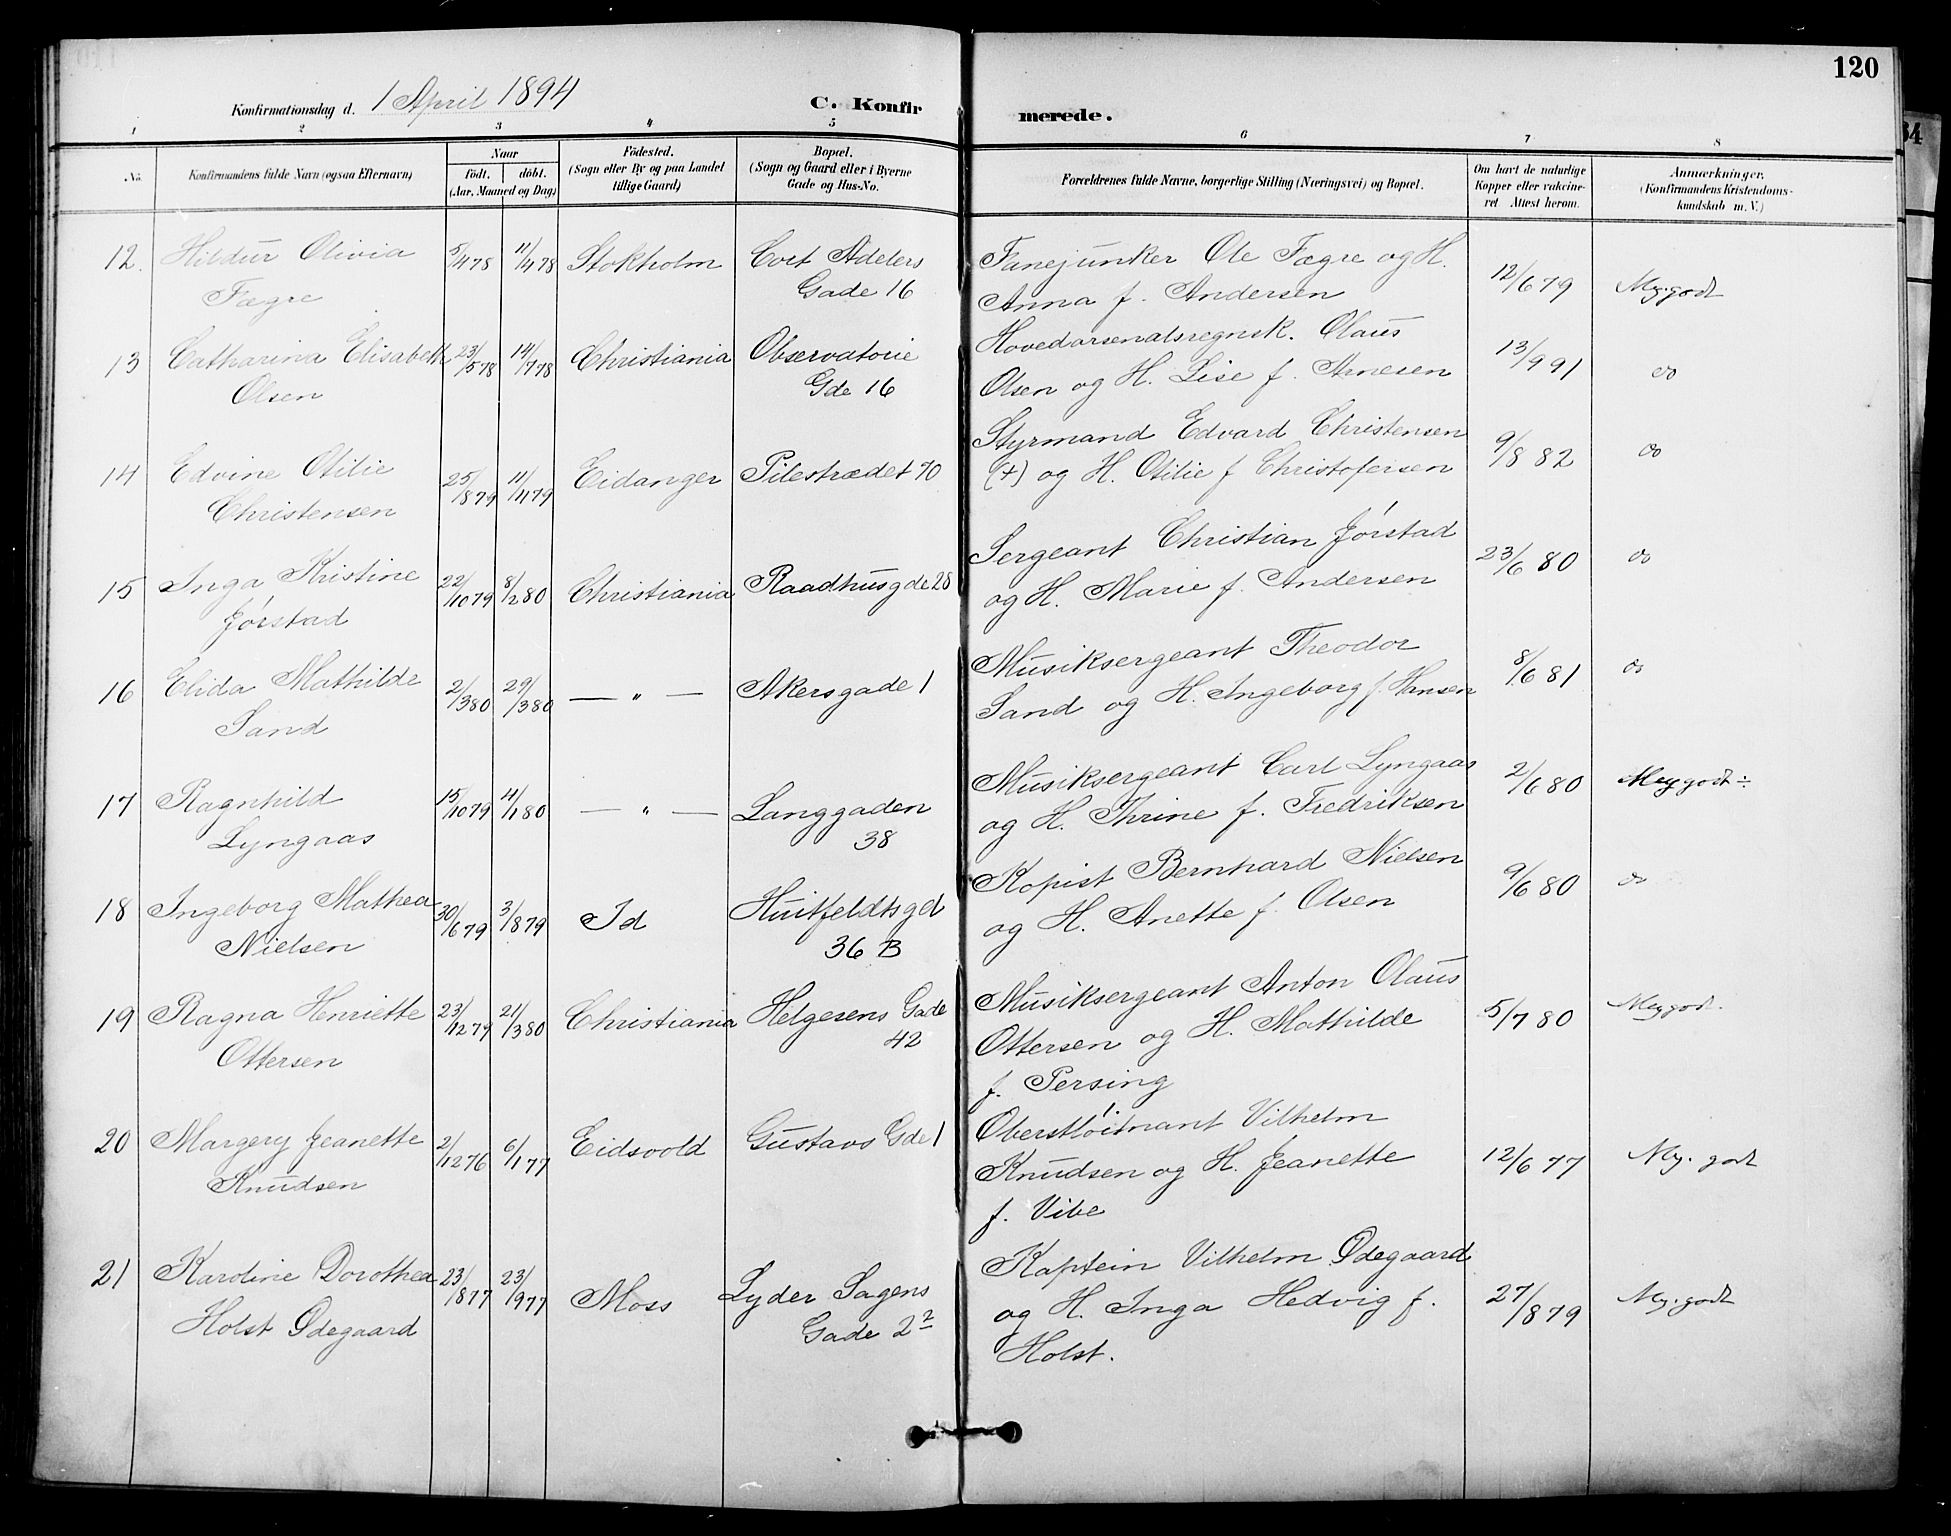 120
Konfirmationsdag d. 1 April 1894
C. Konfirmerede.
1 2 3 4 5 6 7 8
No.
Konfirmandens fulde Navn (ogsaa Efternavn)
Naar
födt. döbt.
(Aar, Maaned og Dag)
Födested.
(Sogn eller By og paa Landet
tillige Gaard)
Bopæl.
(Sogn og Gaard eller i Byerne
Gade og Hus-No.
Forældrenes fulde Navne, borgerlige Stilling (Næringsvei) og Bopæl.
Om havt de naturlige
Kopper eller vakcine-
ret Attest herom.
Anmærkninger.
(Konfirmandens Kristendoms-
kundskab m. V.)
12. Hildur Olivia 5/4 78 11/4 78 Stokholm Cort Adelers Fanejunker Ole Fægre og H. 12/6 79 Mg. godt
Fægre Gade 16 Anna f. Andersen
13 Catharina Elisabeth 23/5 78 14/7 78 Christiania Observatorie Hovedarsenalsregnsk. Olaus 13/9 91 do
Olsen Gde 16 Olsen og H. Lise f. Arnesen
14 Edvine Otilie 25/8 79 11/11 79 Eidanger Pilestrædet 70 Styrmand Edvard Christensen 9/8 82 do
Christensen (+) og H. Otilie f Christofersen
15 Inga Kristine 22/10 79 8/2 80 Christiania Raadhusgde 28 Sergeant Christian Jórstad 23/6 80 do
Jórstad og H. Marie f. Andersen
16 Elida Mathilde 2/3 80 29/3 80 — " — Akersgade 1 Musiksergeant Theodor 8/6 81 do
Sand Sand og H. Ingeborg f. Hansen
17 Ragnhild 15/10 79 4/1 80 — " — Langgaden Musiksergeant Carl Lyngaas 2/6 80 Meg godt ÷
Lyngaas 38 og H. Thrine f. Fredriksen
18 Ingeborg Mathea 30/6 79 3/8 79 Id Huitfeldtsgd Kopist Bernhard Nielsen 9/6 80 do
Nielsen 36 B og H. Anette f. Olsen
19 Ragna Henriette 23/12 79 21/3 80 Christiania Helgesens Gade Musiksergeant Anton Olaus 5/7 80 Meg god.
Ottersen 42 Ottersen og H. Mathilde
f. Persing
20 Margery Jeanette 2/12 76 6/1 77 Eidsvold Gustavs Gde 1 Oberstlóitnant Vilhelm
Knudsen Knudsen og H. Jeanette 12/6 77 Mg. godt
f. Vibe
21 Karoline Dorothea 23/8 77 23/9 77 Moss Lyder Sagens Kaptein Vilhelm Ødegaard
Holst Ødegaard Gade 2² og H. Inga Hedvig f. 27/8 79 Mg. godt
Holst.